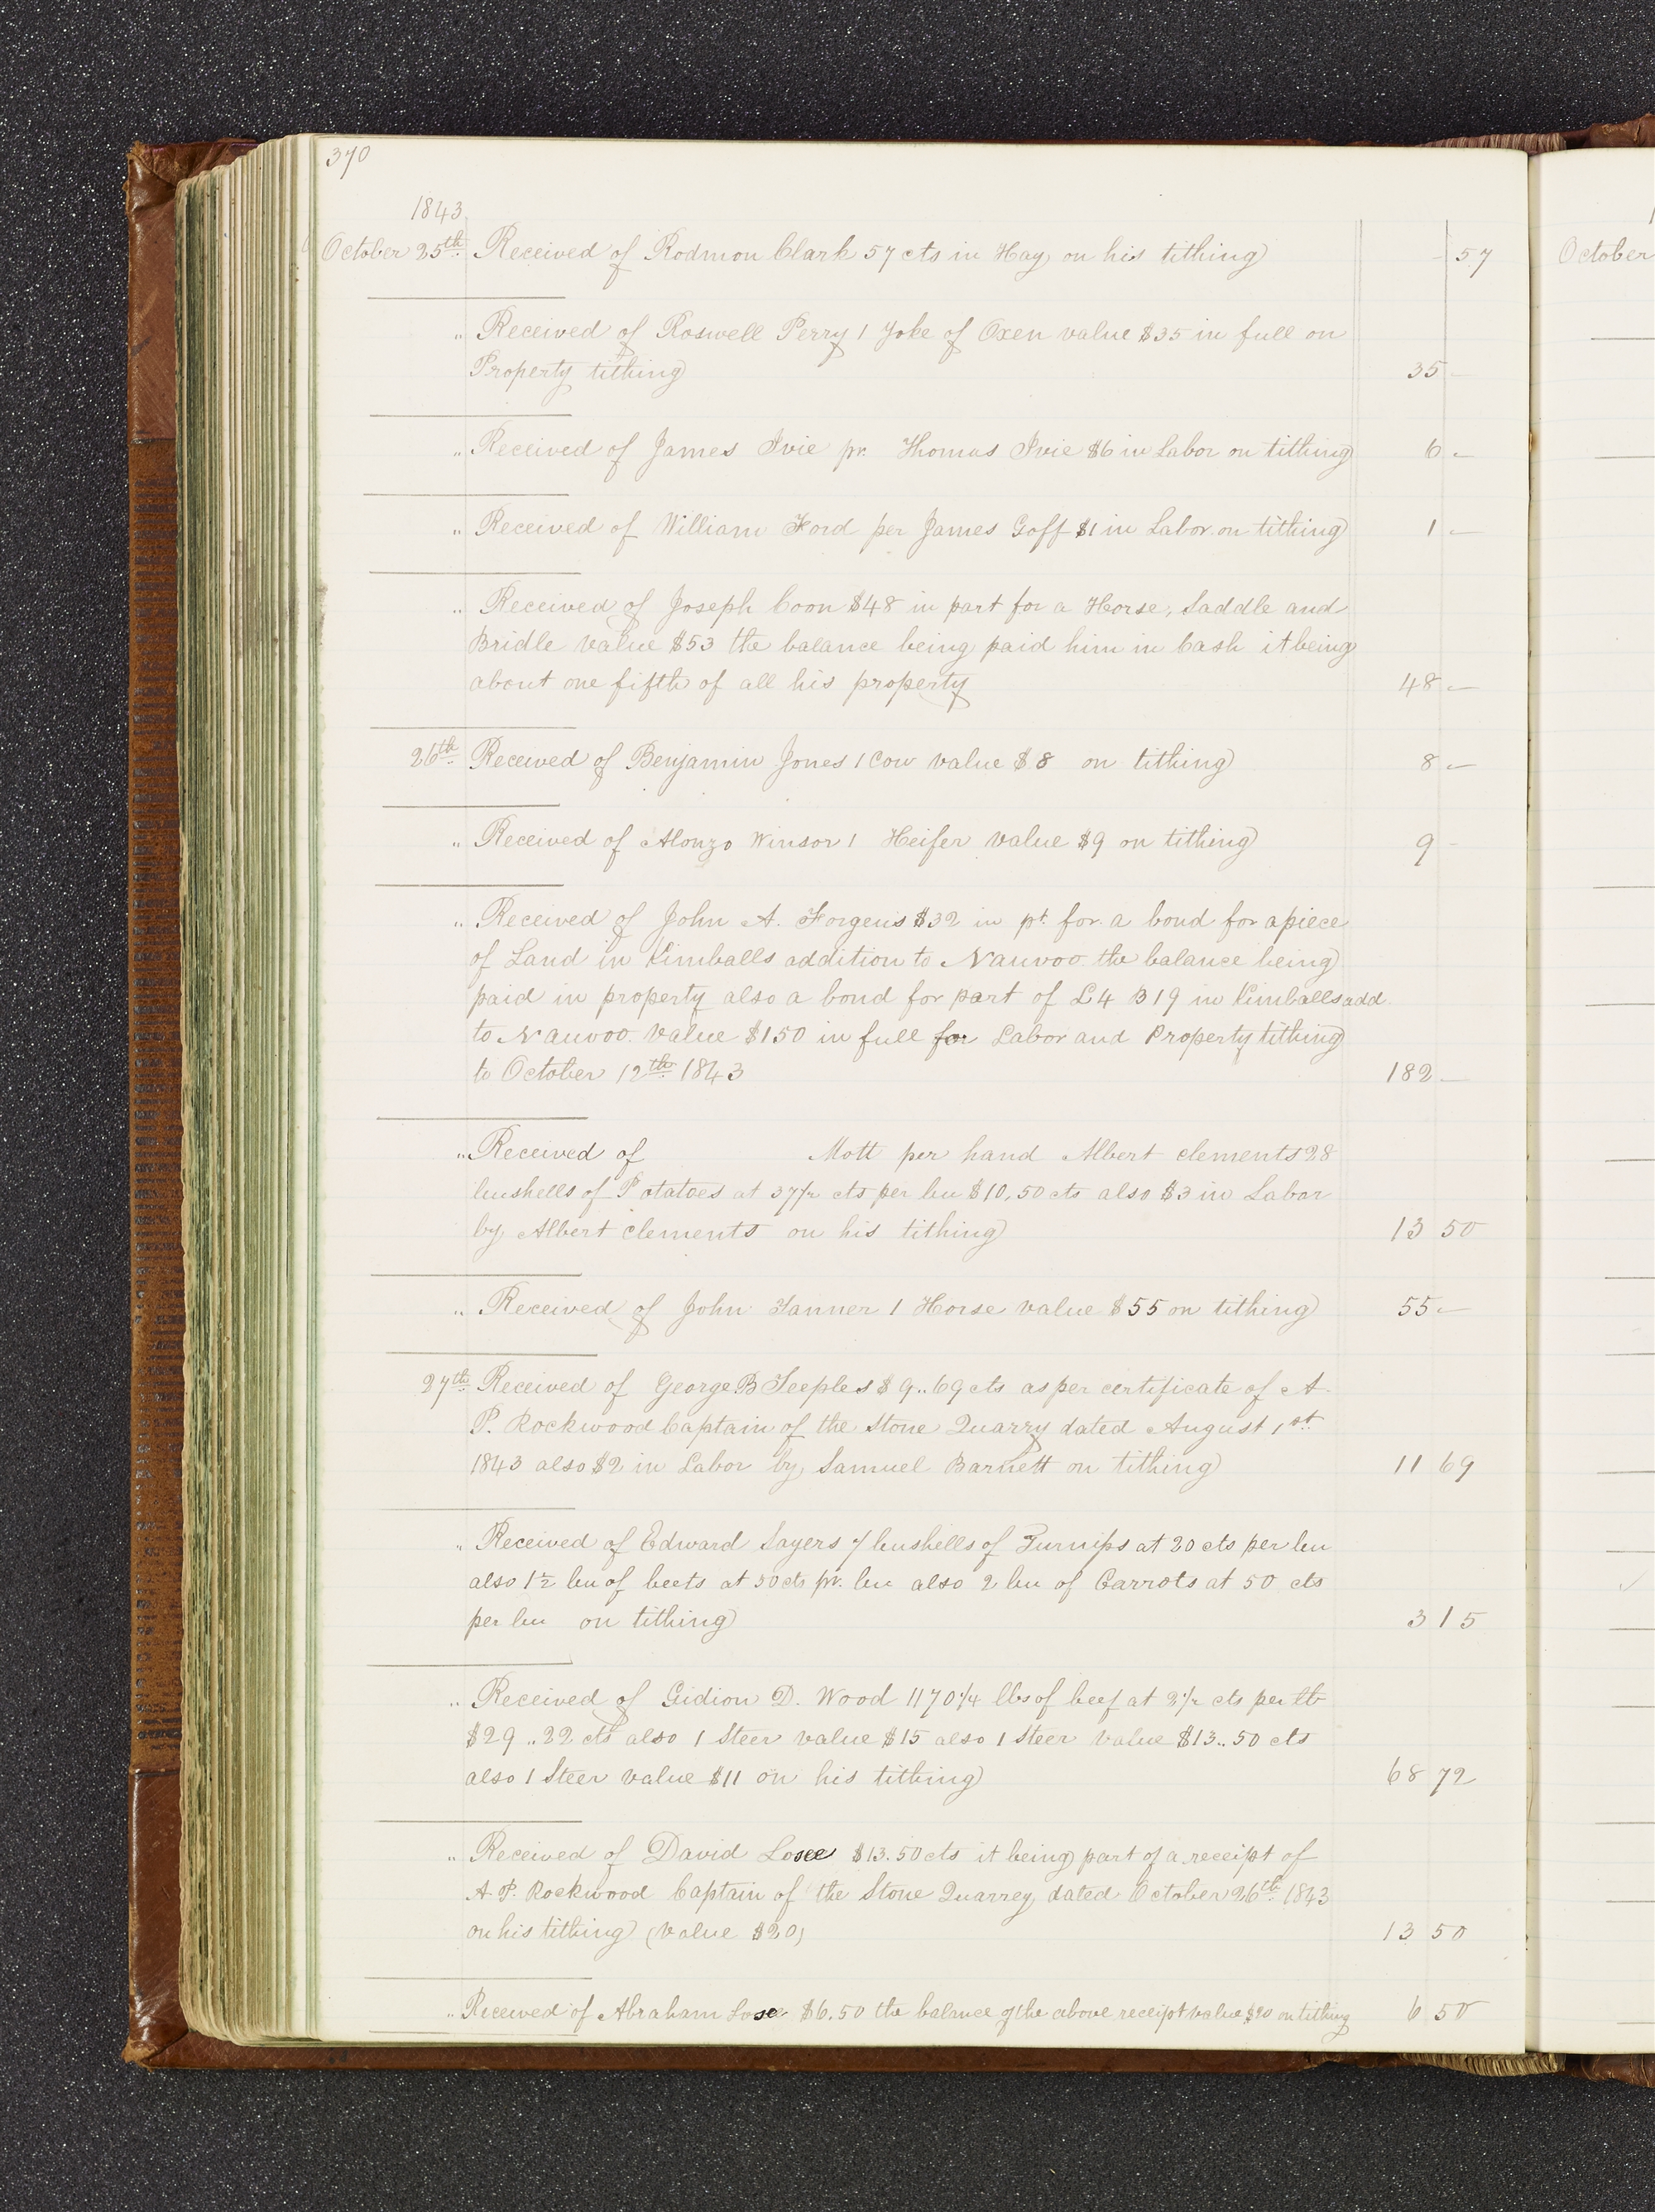 370
1843
October 25th Received of Rodmon Clark 57 cts in Hay on his tithing 57
" Received of Roswell Perry 1 Yoke of Oxen value $35 in full on
Property tithing 35 —
" Received of James Ivie pr. Thomas Ivie $6 in Labor on tithing 6 —
" Received of William Ford per James Goff $1 in Labor on tithing 1 —
" Received of Joseph Coon $48 in part for a Horse, Saddle and
Bridle value $53 the balance being paid him in Cash it being
about one fifth of all his property 48 —
26th Received of Benjamin Jones 1 Cow value $8 on tithing 8 —
" Received of Alonzo Winsor 1 Heifer value $9 on tithing 9 -
" Received of John A. Forgeus $32 in pt. for a bond for a piece
of Land in Kimballs addition to Nauvoo the balance being
paid in property also a bond for part of L4 B19 in Kimballs add
to Nauvoo value $150 in full for Labor and Property tithing
to October 12th 1843 182 —
" Received of Mott per hand Albert Clements 28
bushells of Potatoes at 37½ cts per bu $10,50 cts also $3 in Labor
by Albert Clements on his tithing 13 50
" Received of John Tanner 1 Horse value $55 on tithing 55 —
27th Received of George B Teeples $9..69 cts as per certificate of A.
P. Rockwood Captain of the Stone Quarry dated August 1st
1843 also $2 in Labor by Samuel Barnett on tithing 11 69
" Received of Edward Sayers 7 bushells of Turnips at 20 cts per bu
also 1½ bu of beets at 50 cts pr. bu also 2 bu of Carrots at 50 cts
per bu on tithing 3 15
" Received of Gidion D. Wood 1170¼ lbs of beef at 2½ cts per lb
$29..22 cts also 1 Steer value $15 also 1 Steer value $13..50 cts
also 1 Steer value $11 on his tithing 68 72
" Received of David Losee $13.50 cts it being part of a receipt of
A P. Rockwood Captain of the Stone Quarrey dated October 26th 1843
on his tithing (value $20) 13 50
" Received of Abraham Lose $6.50 the balance of the above receipt value $20 on tithing 6 50
October